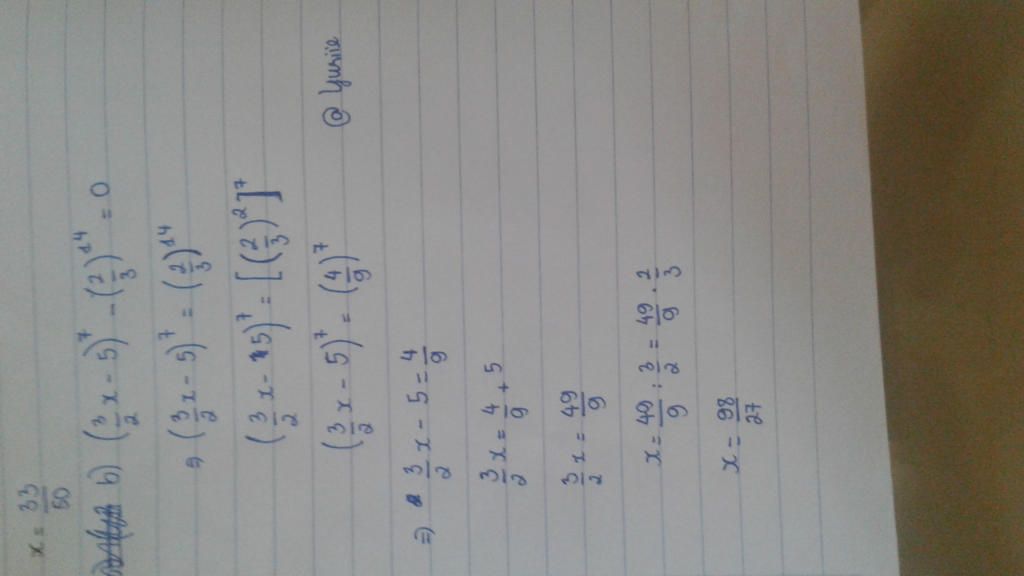 x = 33/50
b) (3/2 x - 5)^7 - (2/3)^14 = 0
⇒ (3/2 x - 5)^7 = (2/3)^14
(3/2 x - 5)^7 = [(2/3)^2]^7
(3/2 x - 5)^7 = (4/9)^7 @ Yuriie
⇒ 3/2 x - 5 = 4/9
3/2 x = 4/9 + 5
3/2 x = 49/9
x = 49/9 : 3/2 = 49/9 . 2/3
x = 98/27